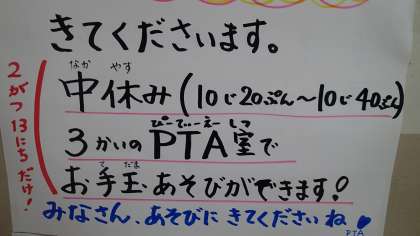 きてくださいます。
2がつ13にちだけ!
なか やす
中休み(10じ20ぷん〜10じ40ぷん)
ぴーてぃーえー しつ
3かいのPTA室で
て だま
お手玉あそびができます!
みなさん、あそびにきてくださいね
PTA